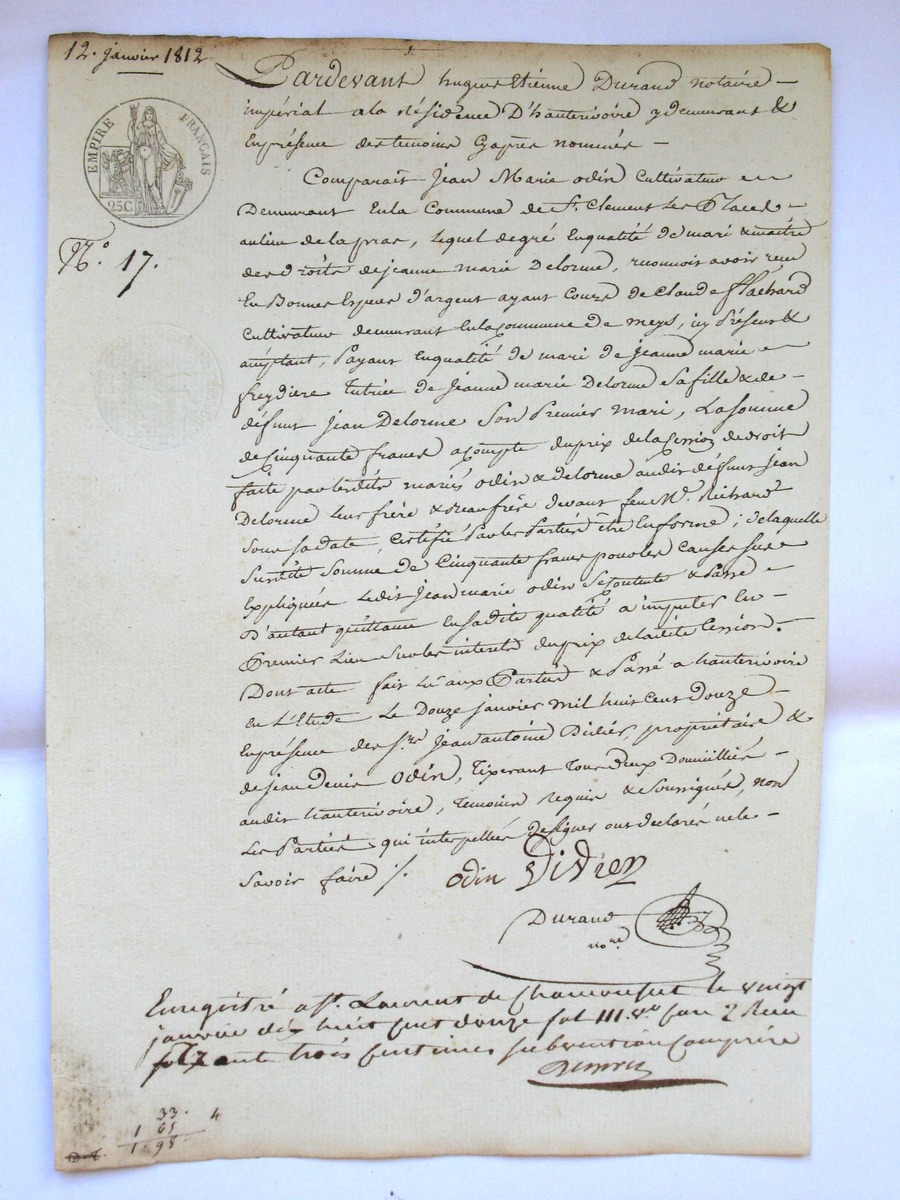 12. janvier 1812
EMPIRE FRANÇAIS
25C
N.o 17.
Pardevant hugues Etienne Durand notaire
impérial ala résidence D'hauterivoire y demeurant &
En présence des temoins Cyaprès nommés
Comparait Jean Marie odin Cultivateur
Demeurant En la Commune de St. Clement Les Places
aulieu de la pras, Lequel de gré En qualité de mari & maitre
des droits de jeanne marie Delorme, reconnoit avoir reçu
En Bonnes Especes d'argent ayant Cours de Claude flachard
Cultivateur demeurant En la Commune de meys, icy Présent &
acceptant, Payant En qualité de mari de jeanne marie
freydiere tutrice de jeanne marie Delorme Sa fille & de
défunt Jean Delorme Son Premier mari, La Somme
de Cinquante francs acompte du prix de la Cession de droit
faite par lesdits mariés odin & delorme audit défunt Jean
Delorme Leur frère & Beaufrère devant feu Me. Richard
Sous Sa date, Certifié Par les Parties être En forme; de laquelle
Susdite Somme de Cinquante francs pour les Causes Sus
Expliquées Ledit Jean marie odin Se Contente & Passe
D'autant quittance En Sadite qualité a imputer En
Premier Lieu Sur les interets du prix de ladite Cession.
Dont acte fait Lu aux Parties & Passé a hauterivoire
en L'Etude Le Douze janvier mil huit Cent Douze
En présence des Srs Jean antoine Didier, propriétaire &
de jean Denis Odin, Tixerant Tous Deux Domiciliés
audit hauterivoire, Temoins Requis & Soussignés, non
Les Parties qui interpellées de Signer ont déclarés ne le
Savoir faire ./.
odin Didier
Durand
nore
Enregistré a St. Laurent de Chamousset le vingt
janvier dix huit cent douze fol 111. vo Case 2 Reçu
soixante trois Centimes subvention Comprise
33. 4
1 65
1. 98